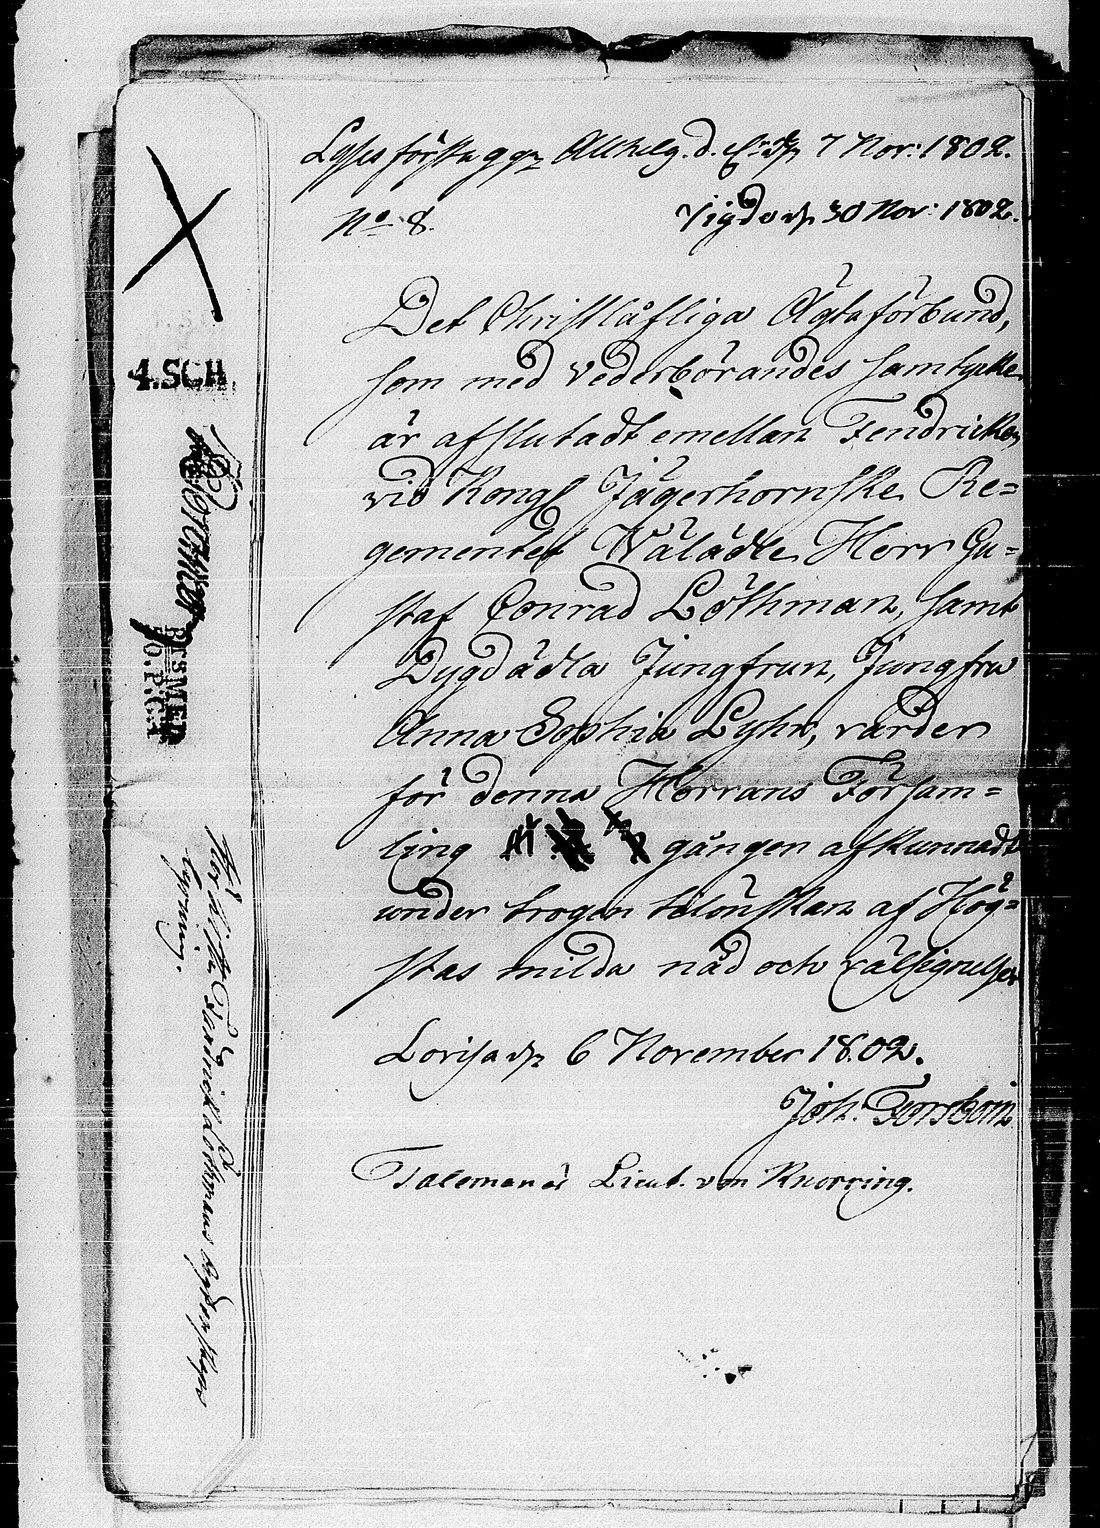 Lyses första ggn Allhelg. d. 7 Nov: 1802.
No 8. Vigde d. 30 Nov: 1802.
Det Christlåfliga Ägtaförbund,
som med Vederbörandes samtycke
är afslutadt emellan Fendricken
vid Kongl Jägerhornske Re=
gementet Wälädle Herr Gu=
staf Conrad Löthman, samt
Dygdädla Jungfrun, Jungfru
Anna Sophia Lyhr, varder
för denna Herrans Försam=
ling gången afkunnadt
under trogen tilönskan af Hög=
stas milda nåd och välsignelse
Lovisa d. 6 November 1802.
Joh. Forsbom
Taleman är Lieut. von Knorring.
4.SCH.
lysning.